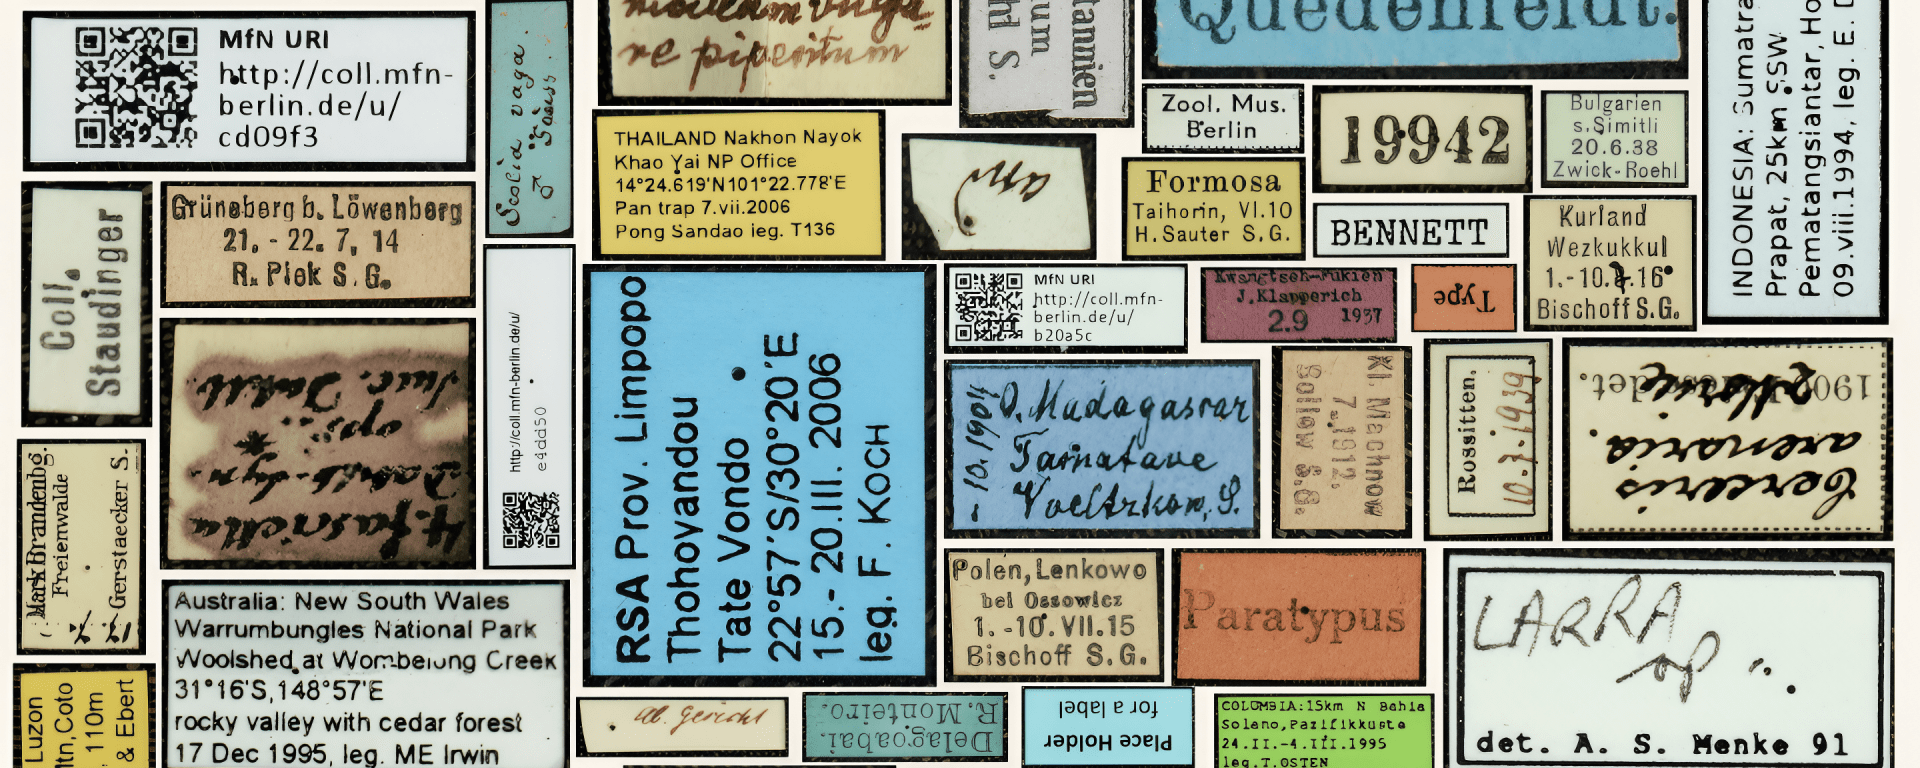 MfN URI
http://coll.mfn-
berlin.de/u/
cd09f3
Scolia vaga.
♂ Sauss.
re piperitum
tannien
um
hl S.
Quedenfeldt.
INDONESIA: Sumatra
Prapat, 25km SSW
Pematangsiantar, Ho
09.viii.1994, leg. E. D
Coll.
Staudinger
Grüneberg b. Löwenberg
21. - 22. 7. 14
R. Piek S. G.
THAILAND Nakhon Nayok
Khao Yai NP Office
14°24.619'N101°22.778'E
Pan trap 7.vii.2006
Pong Sandao leg. T136
Zool. Mus.
Berlin
19942
Bulgarien
s. Simitli
20.6.38
Zwick-Roehl
Formosa
Taihorin, VI.10
H. Sauter S. G.
BENNETT
Kurland
Wezkukkul
1.-10.7.16
Bischoff S.G.
http://coll.mfn-berlin.de/u/
e4dd50
RSA Prov. Limpopo
Thohoyandou
Tate Vondo
22°57'S/30°20'E
15.- 20.III. 2006
leg. F. KOCH
MfN URI
http://coll.mfn-
berlin.de/u/
b20a5c
Kwangtseh-Fukien
J. Klapperich
2.9 1937
Type
H. fasciella
O. Madagascar
Tamatave
Voeltzkow, S.
10.1904
Kl. Machnow
7.1912.
Bollow S.G.
Rossitten.
10-7-1939
Cerceris
arenaria.
190 det.
Mark Brandenbg.
Freienwalde
17. 7.
Gerstaecker S.
Australia: New South Wales
Warrumbungles National Park
Woolshed at Wombelong Creek
31°16'S,148°57'E
rocky valley with cedar forest
17 Dec 1995, leg. ME Irwin
Polen, Lenkowo
bei Ossowicz
1. -10. VII.15
Bischoff S. G.
Paratypus
LARRA
sp
det. A. S. Menke 91
Luzon
ltn,Coto
110m
& Ebert
Delagoabai.
R. Monteiro.
Place Holder
for a label
COLOMBIA:15km N Bahia
Solano,Pazifikkuste
24.II.-4.III.1995
leg.T.OSTEN